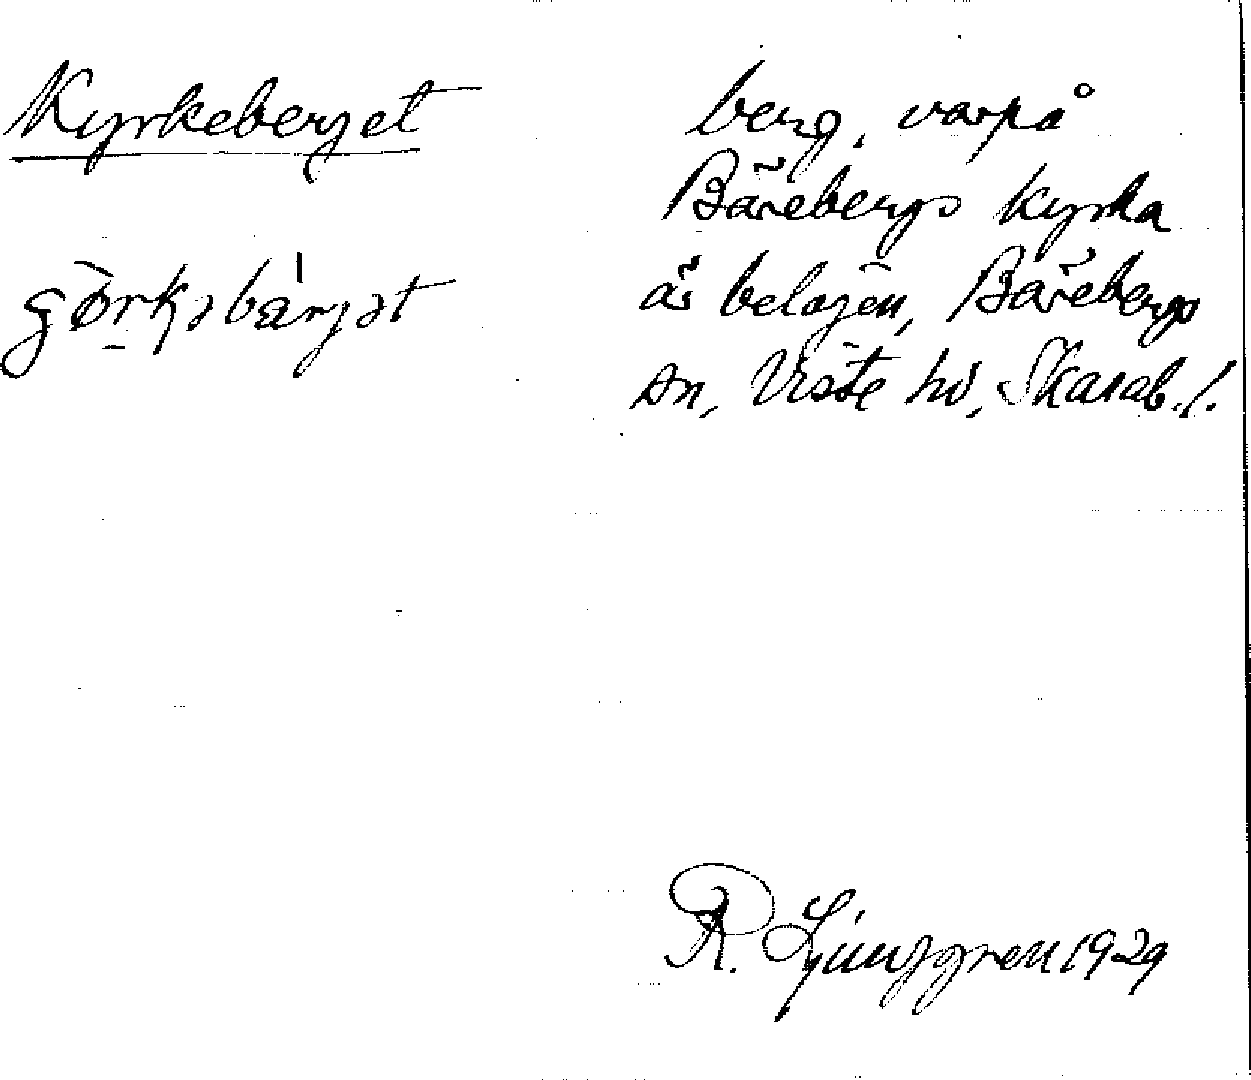 Kyrkeberget
berg, varpå
Bärebergs kyrka
är belagen, Bärebergs
sn, Viste hd, Skarab. l.
R. Ljunggren 1929